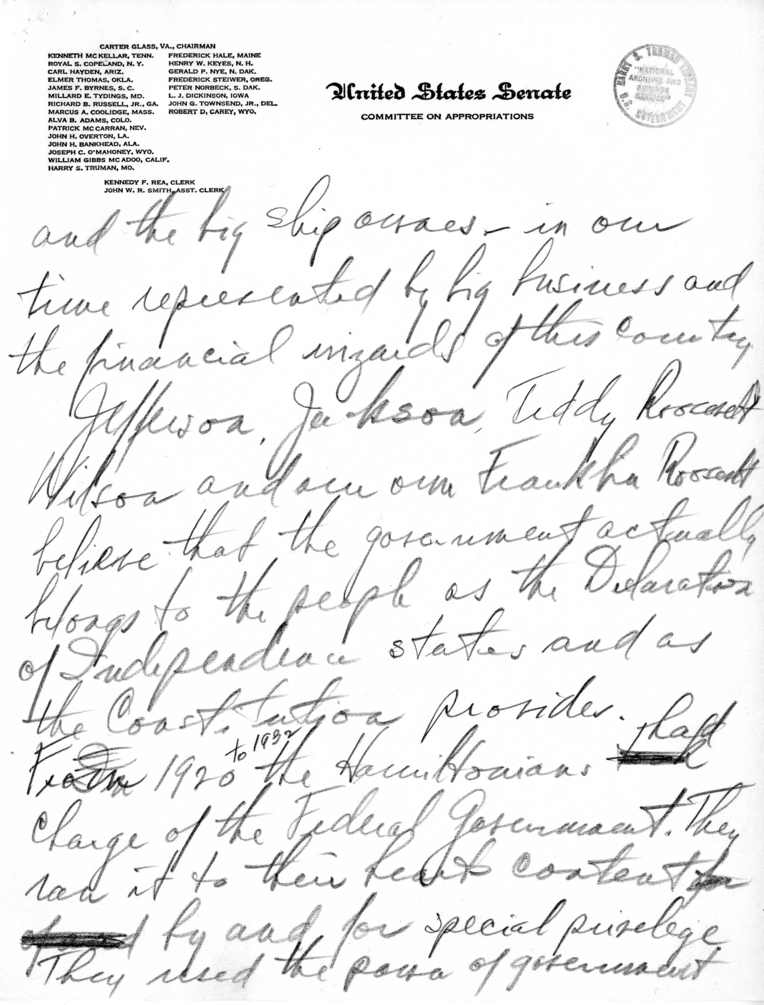 CARTER GLASS, VA., CHAIRMAN
KENNETH McKELLAR, TENN.
ROYAL S. COPELAND, N. Y.
CARL HAYDEN, ARIZ.
ELMER THOMAS, OKLA.
JAMES F. BYRNES, S. C.
MILLARD E. TYDINGS, MD.
RICHARD B. RUSSELL, JR., GA.
MARCUS A. COOLIDGE, MASS.
ALVA B. ADAMS, COLO.
PATRICK McCARRAN, NEV.
JOHN H. OVERTON, LA.
JOHN H. BANKHEAD, ALA.
JOSEPH C. O'MAHONEY, WYO.
WILLIAM GIBBS McADOO, CALIF.
HARRY S. TRUMAN, MO.
FREDERICK HALE, MAINE
HENRY W. KEYES, N. H.
GERALD P. NYE, N. DAK.
FREDERICK STEIWER, OREG.
PETER NORBECK, S. DAK.
L. J. DICKINSON, IOWA
JOHN G. TOWNSEND, JR., DEL.
ROBERT D. CAREY, WYO.
KENNEDY F. REA, CLERK
JOHN W. R. SMITH, ASST. CLERK
United States Senate
COMMITTEE ON APPROPRIATIONS
HARRY S. TRUMAN LIBRARY
"NATIONAL
ARCHIVES AND
RECORDS
SERVICE"
U.S. GOVERNMENT
and the big ship owners – in our
time represented by big business and
the financial wizards of this country
Jefferson, Jackson, Teddy Roosevelt
Wilson and our own Franklin Roosevelt
believe that the government actually
belongs to the people as the Declaration
of Independence states and as
the Constitution provides.
From 1920 to 1932 the Hamiltonians had
charge of the Federal Government. They
ran it to their hearts content
by and for special privilege
They used the power of government